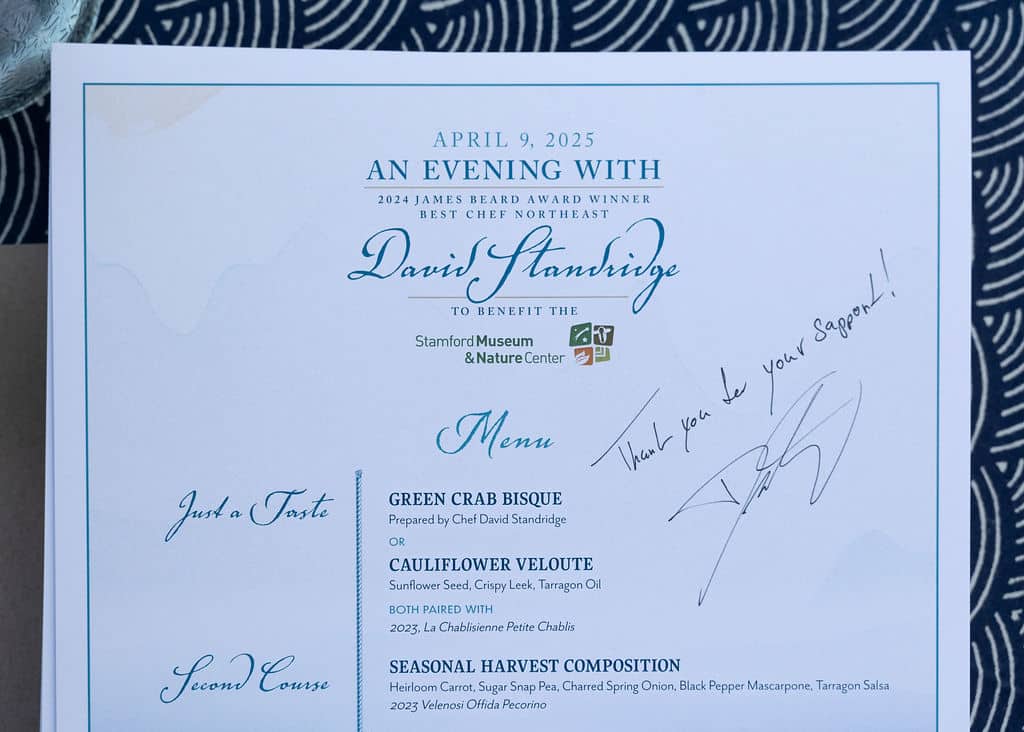 APRIL 9, 2025
AN EVENING WITH
2024 JAMES BEARD AWARD WINNER
BEST CHEF NORTHEAST
David Standridge
TO BENEFIT THE
Stamford Museum
& Nature Center
Thank you for your Support!
Menu
Just a Taste
GREEN CRAB BISQUE
Prepared by Chef David Standridge
OR
CAULIFLOWER VELOUTE
Sunflower Seed, Crispy Leek, Tarragon Oil
BOTH PAIRED WITH
2023, La Chablisienne Petite Chablis
Second Course
SEASONAL HARVEST COMPOSITION
Heirloom Carrot, Sugar Snap Pea, Charred Spring Onion, Black Pepper Mascarpone, Tarragon Salsa
2023 Velenosi Offida Pecorino